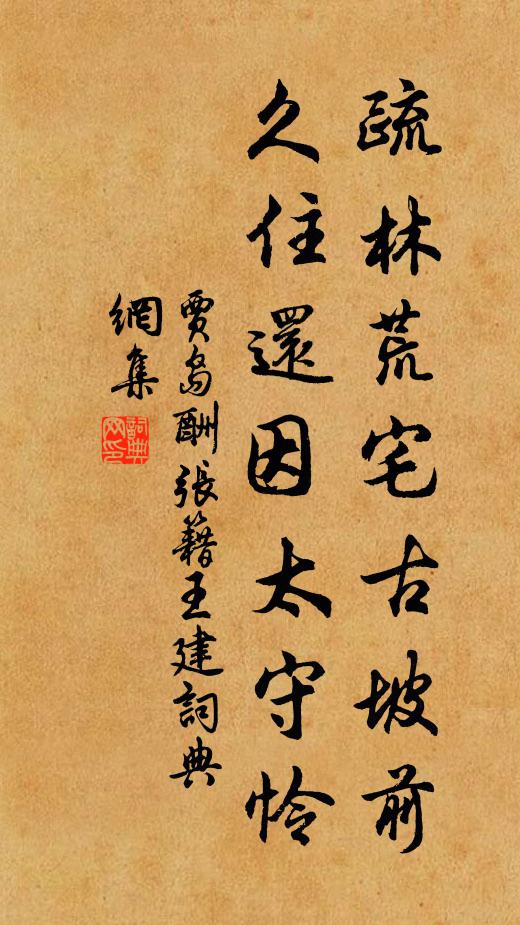 疏林荒宅古坡前
久住還因太守怜
賈島酬張籍王建詞典
網集
詞典網印